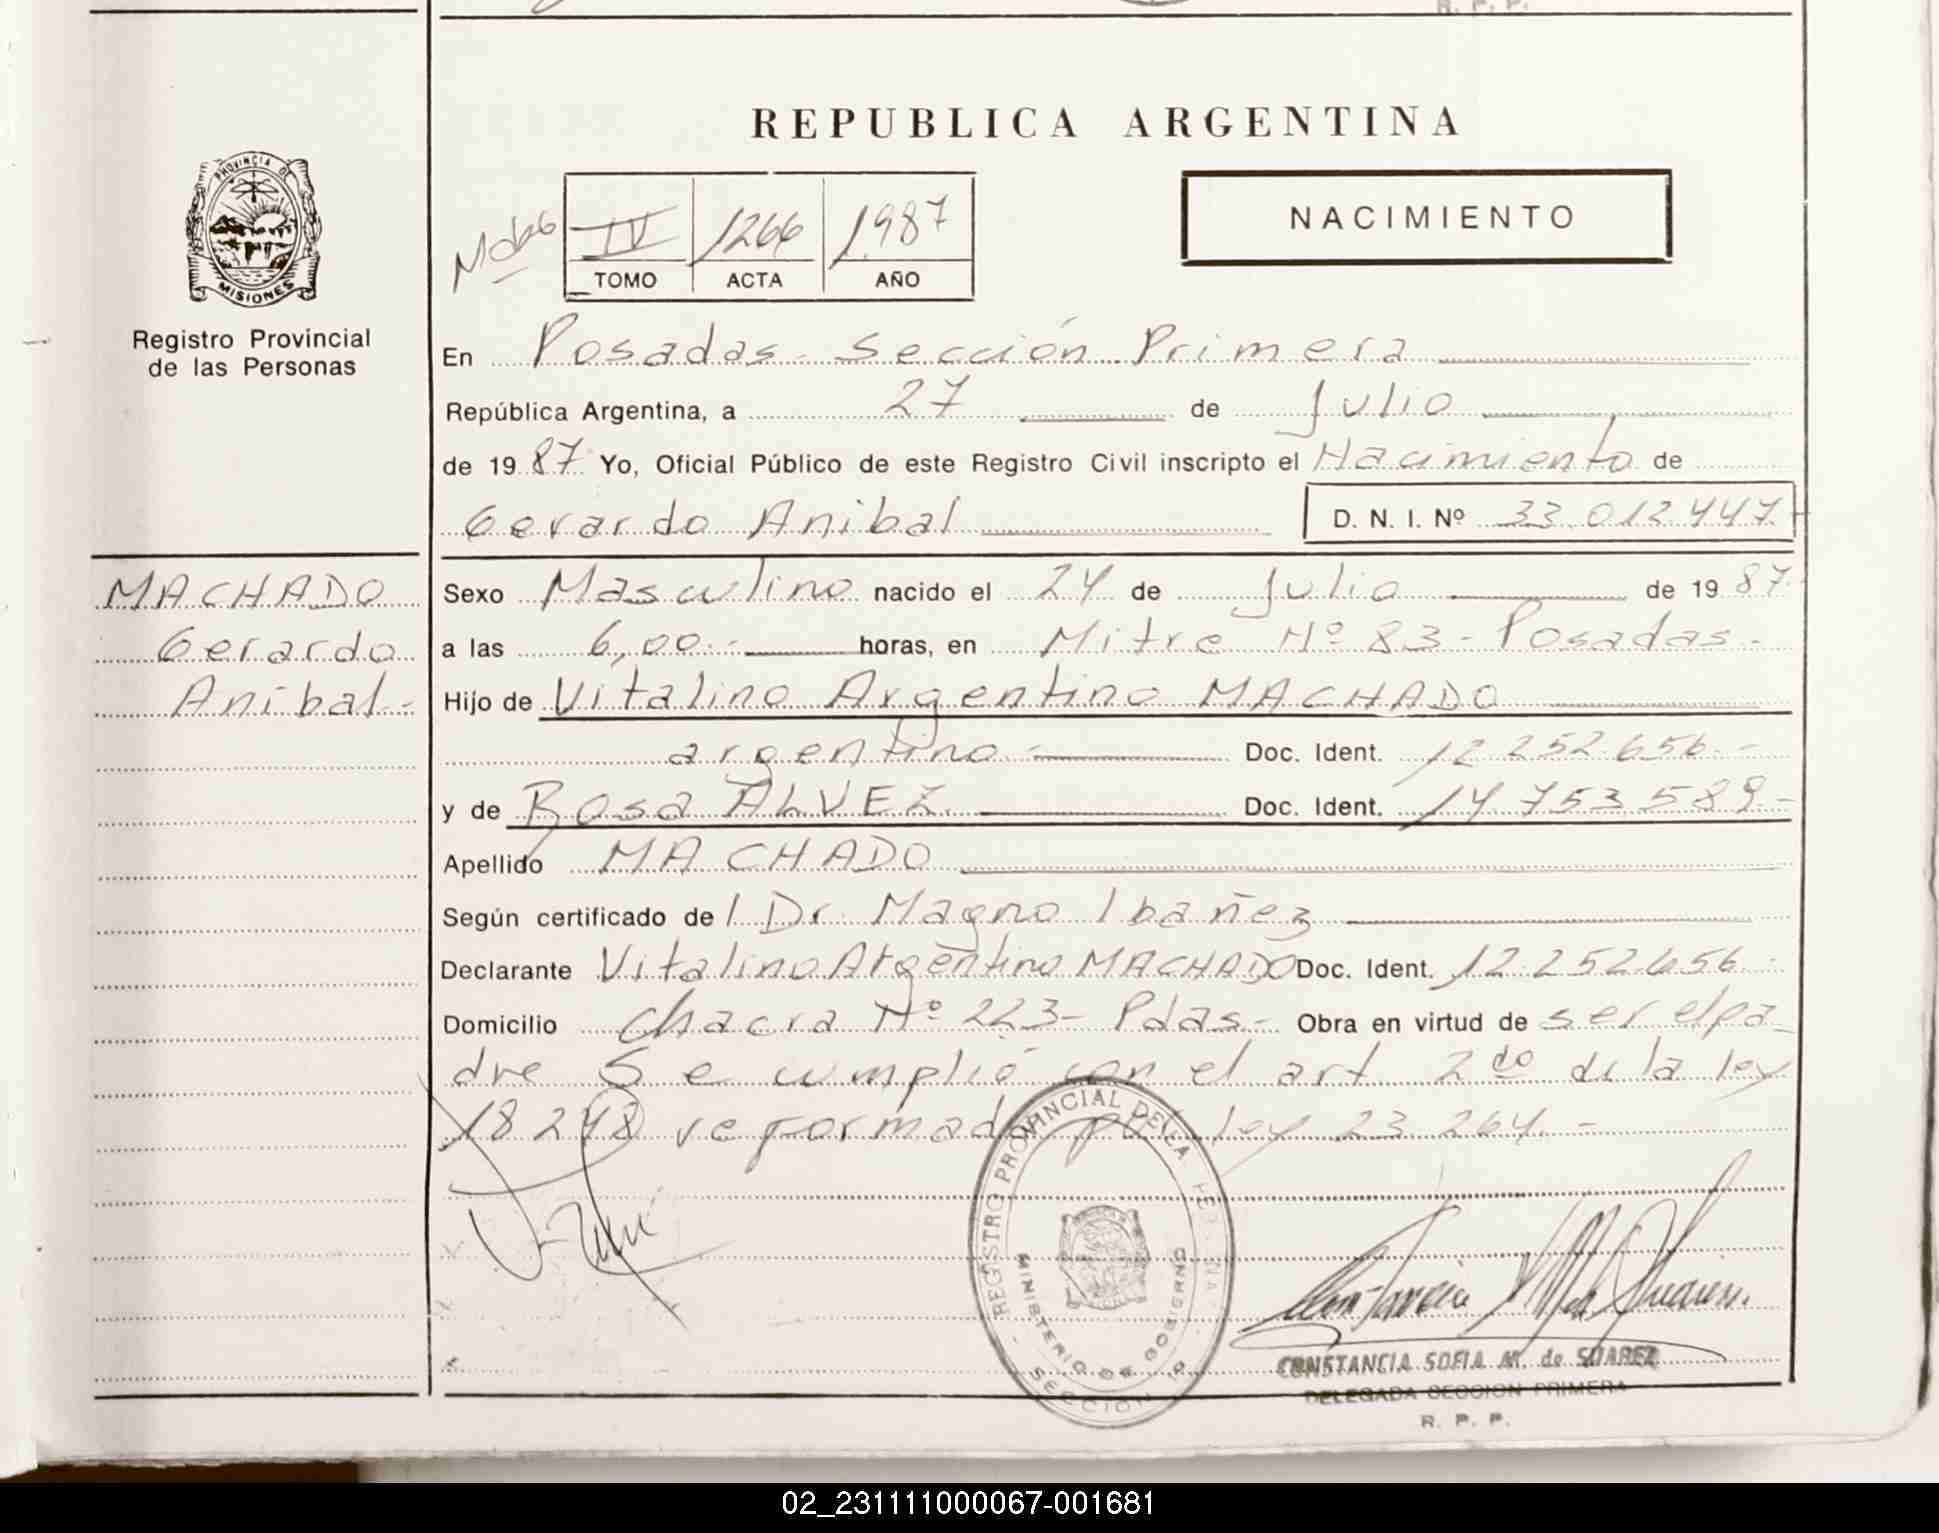 R. P. P.
REPUBLICA ARGENTINA
PROVINCIA DE
MISIONES
Registro Provincial
de las Personas
IV 1266 1.987
TOMO ACTA AÑO
NACIMIENTO
En Posadas - Sección Primera
República Argentina, a 27 de Julio
de 19 87 Yo, Oficial Público de este Registro Civil inscripto el Nacimiento de
Gerardo Anibal D. N. I. Nº 33.012.447.-
MACHADO
Gerardo
Anibal.-
Sexo Masculino nacido el 24 de Julio de 19 87.
a las 6,00.- horas, en Mitre Nº 83 - Posadas.-
Hijo de Vitalino Argentino MACHADO
argentino.- Doc. Ident. 12.252.656.-
y de Rosa ALVEZ. Doc. Ident. 14.753.589.-
Apellido MACHADO
Según certificado del Dr. Magno Ibañez
Declarante Vitalino Argentino MACHADO Doc. Ident. 12.252.656.-
Domicilio Chacra Nº 223- Pdas.- Obra en virtud de ser el pa-
dre Se cumplió con el art. 2do de la ley
18248 reformado por ley 23.264.-
REGISTRO PROVINCIAL DE LAS PERSONAS
MINISTERIO DE GOBIERNO
SECCION 1ª
CONSTANCIA SOFIA M. de SUAREZ
DELEGADA SECCION PRIMERA
R. P. P.
02_231111000067-001681